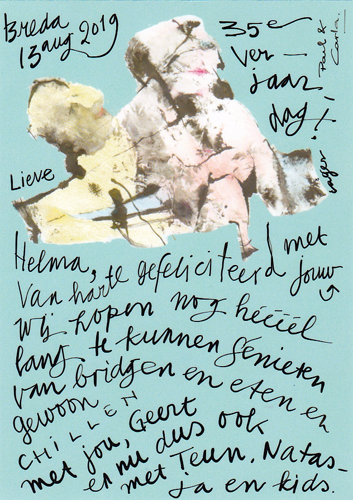 Breda
13 aug 2019
35e
Ver-
jaar
dag!
Paul &
Carla
Lieve
Helma,
Van harte gefeliciteerd met
jouw
Wij hopen nog hééél
lang te kunnen genieten
van bridgen en eten en
gewoon
CHILLEN
met jou, Geert
en nu dus ook
met Teun, Natas-
ja en kids.